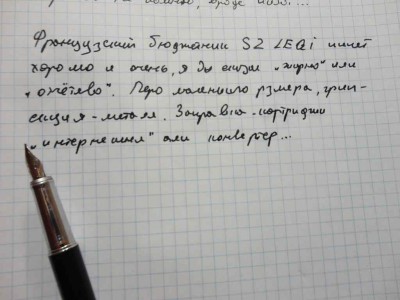 вроде
Французский бюджетник SZ LEQI пишет
хорошо и очень, я бы сказал „жирно“ или
Перо маленького размера, грип-
секция - металл. Заправка - картриджи
„интернешнл“ или конвертер...